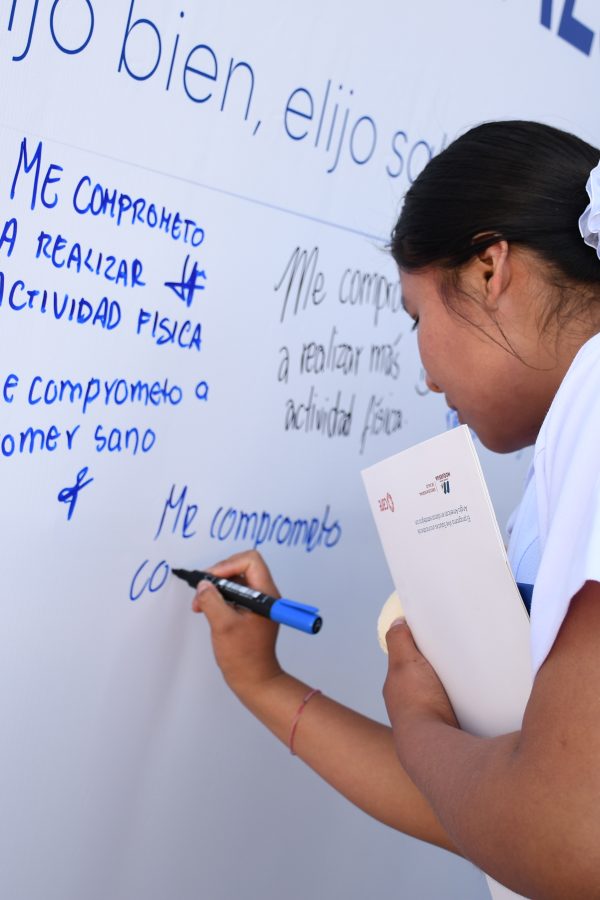 ijo bien, elijo sa
ME COMPROMETO
A REALIZAR
ACTIVIDAD FISICA
e comprometo a
omer sano
Me compro
a realizar más
actividad física.
Me comprometo
co
care
MOQUEGUA